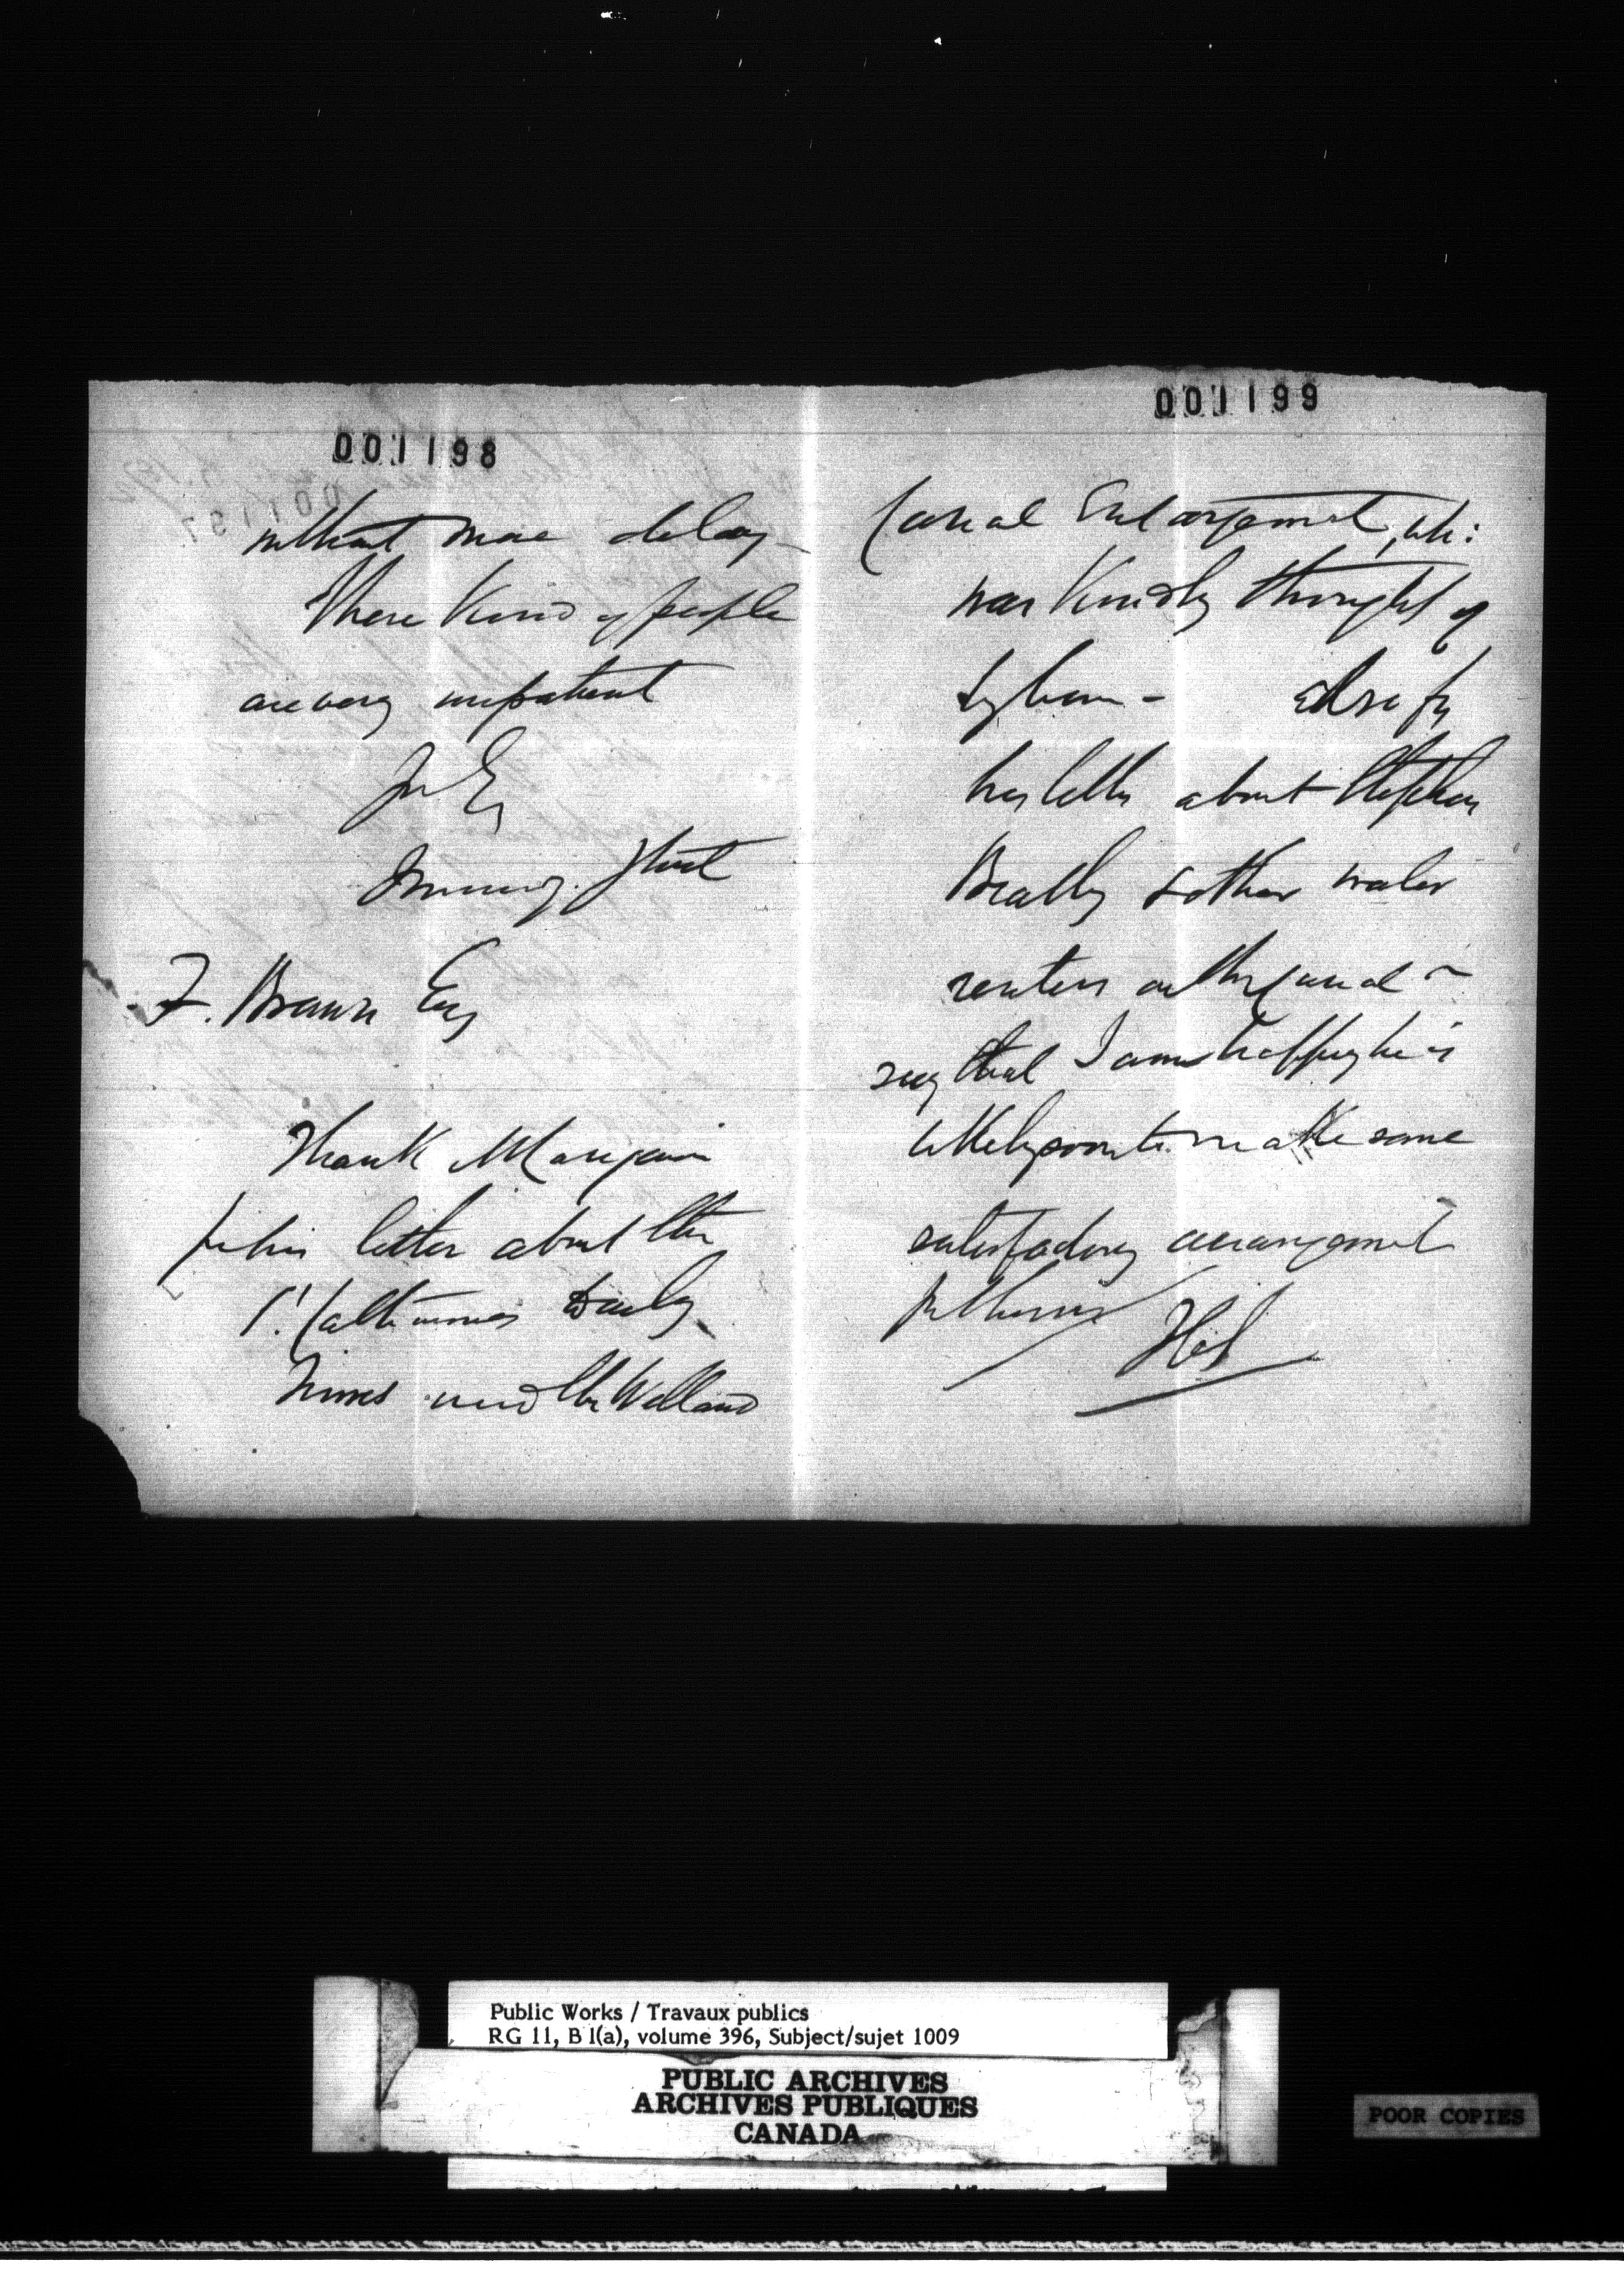 001198
without more delay –
These kind of people
are very impatient
F. Braun Esq
Thank
for his letter about the
St. Catharines Daily
Times and the Welland
001199
Canal Enlargement, wh:
was kindly thought of
by him – Also for
his letter about Stephen
Beatty & other water
renters on the Canal –
say that I am he is
likely soon to make some
satisfactory arrangement
for them
Public Works / Travaux publics
RG 11, B 1(a), volume 396, Subject/sujet 1009
PUBLIC ARCHIVES
ARCHIVES PUBLIQUES
CANADA
POOR COPIES